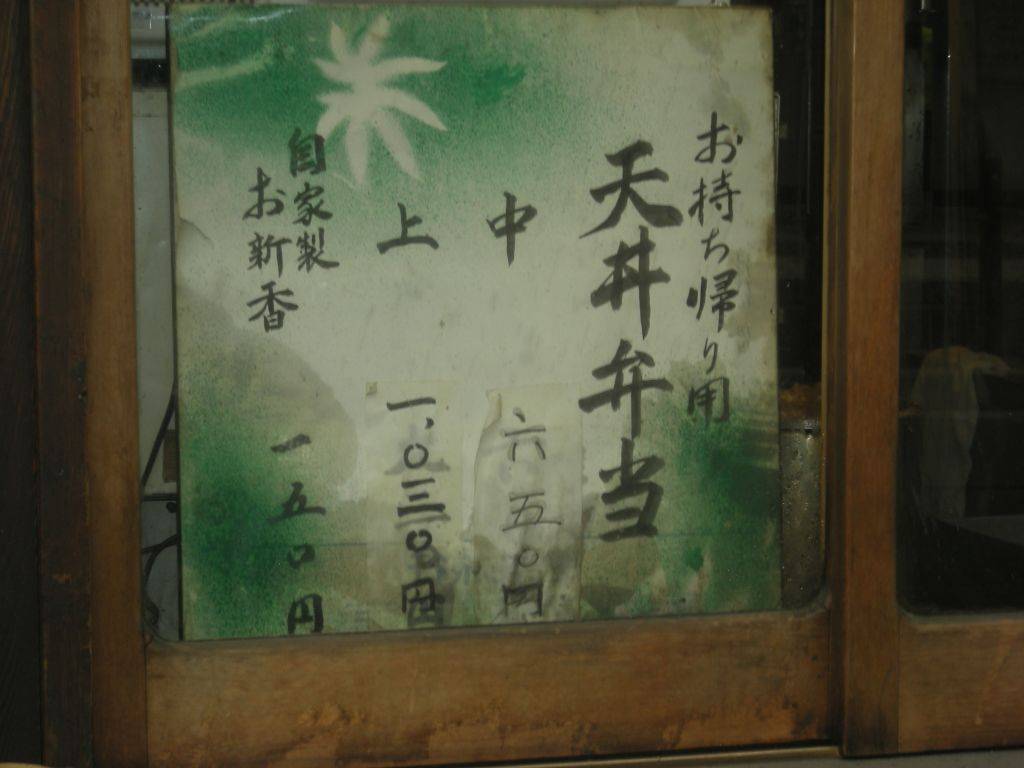 お持ち帰り用
天丼弁当
中 六五〇円
上 一、〇三〇円
自家製
お新香 一五〇円